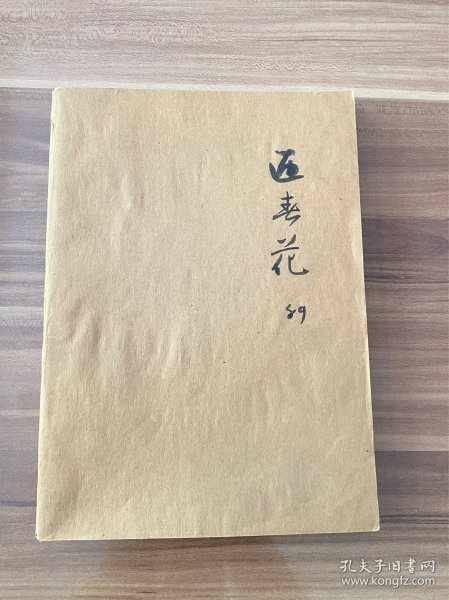 迎春花
89
孔夫子旧书网
www.kongfz.com